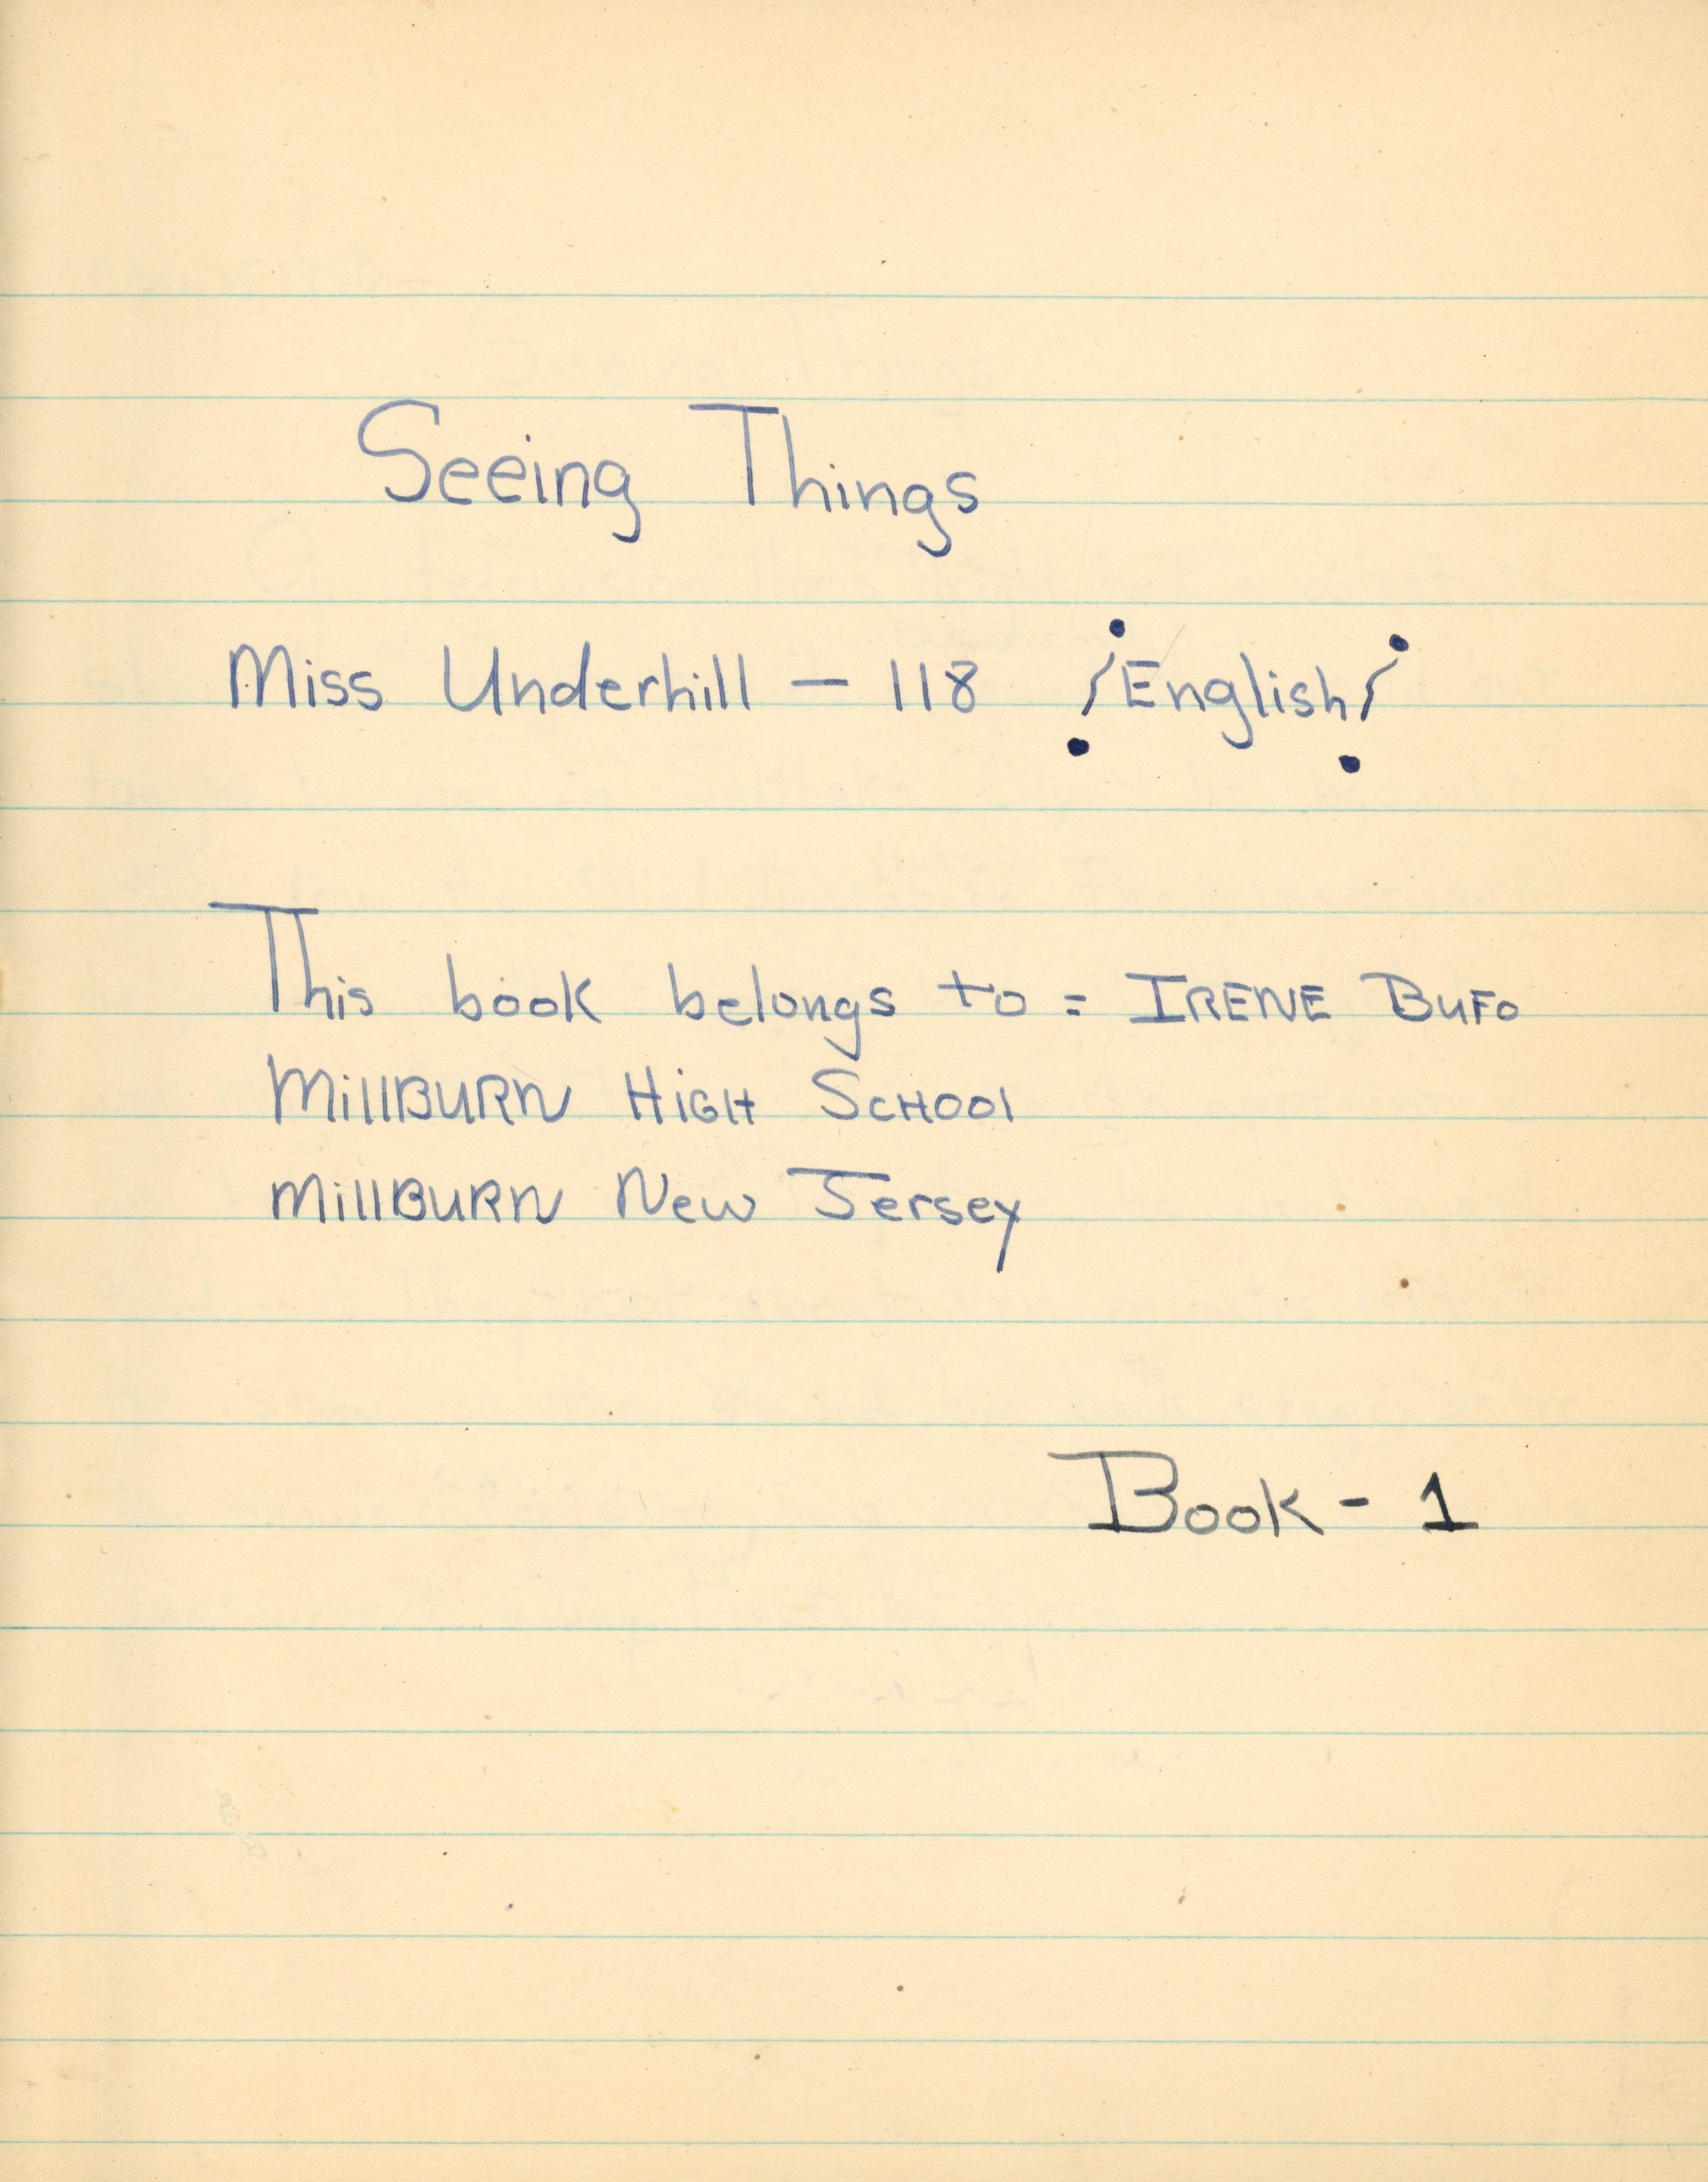 Seeing Things
Miss Underhill — 118 /English/
This book belongs to = IRENE BUFO
MillBURN HiGH SCHOOl
MillBURN New Jersey
Book - 1